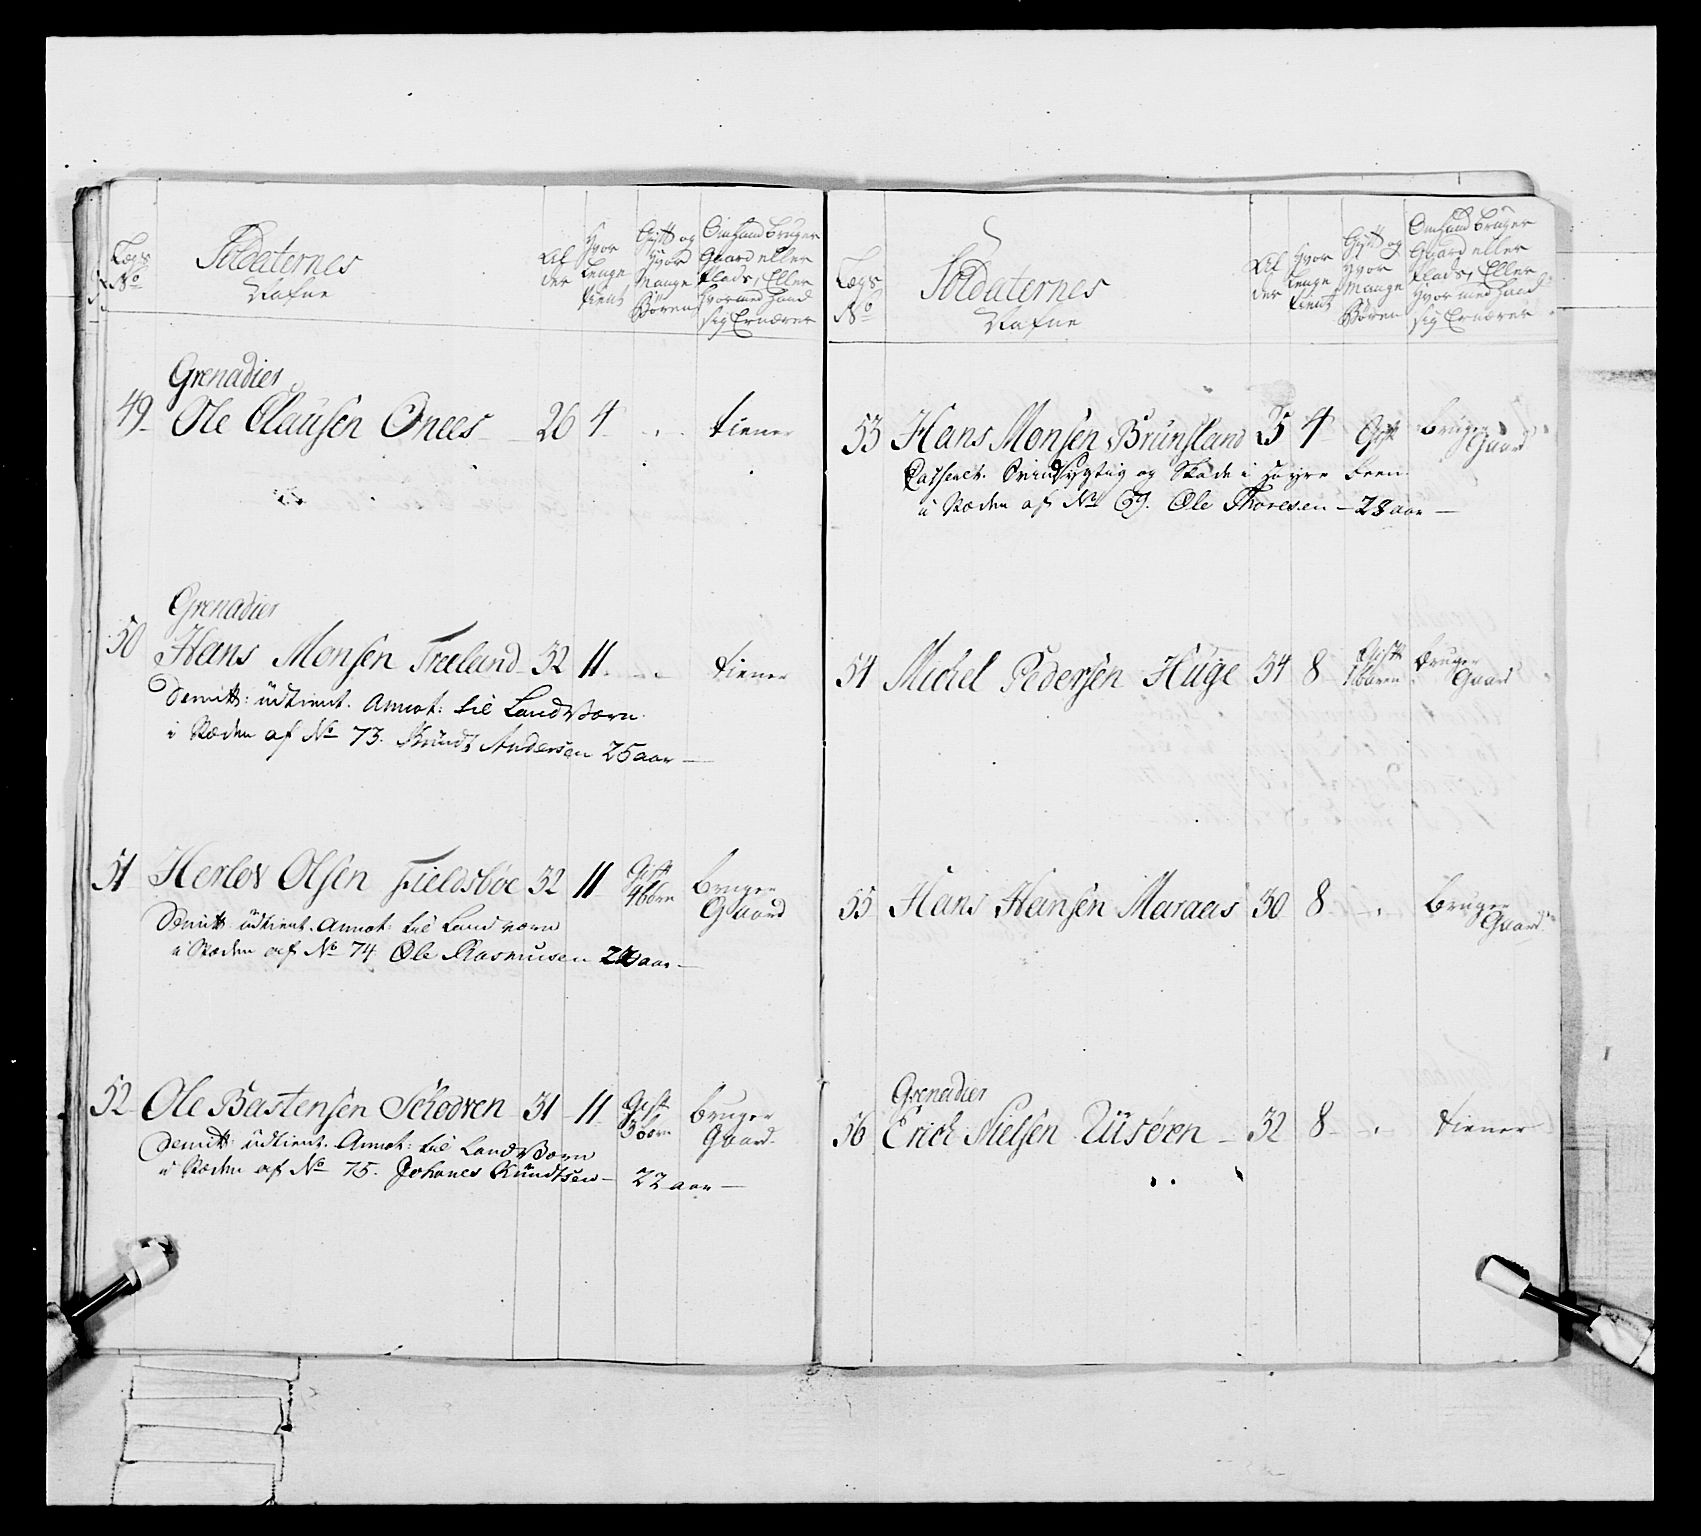 Lægs No
Soldaternes Nafne
Al der
Hvor Lenge tient
Gift og Hvor Mange Børen
Om hand bruger Gaard eller Plads, Eller Hvormed hand sig Ernærer
Grenadier
49 Ole Clausen Onees 26 4 tiener
Grenadier
50 Hans Monsen Treeland 32 11 tiener
Demitt: üdtient. Annot: til Land Værn
i Stæden af No 73. Knüdt Andersen 25 aar
51 Herlov Olsen Fieldsbøe 32 11 Gift 4 børn bruger Gaard
Demitt: üdtient. Annot: til Land værn
i Stæden af No 74 Ole Rasmusen aar
52 Ole Bastensen Schodven 31 11 Gift 3 børn bruger Gaard
Demitt: üdtient. Annot: til Land Værn
i Stæden af No 75. Johanes Knüdtsen 22 aar
Lægs No
Soldaternes Nafne
Al der
Hvor Lenge tient
Gift og Hvor Mange Børen
Om hand bruger Gaard eller Plads, Eller Hvor med hand sig Ernærer
53 Hans Monsen Brunsland 35 4 Gift bruger Gaard
Casseret. Svindsygtig og Skade i Høyre Been
i Stæden af No 69. Ole Thoresen 28 aar
54 Michel Pedersen Hüge 34 8 Gift 1 Baren bruger Gaard
55 Hans Hansen Maraas 30 8 bruger Gaard
Grenadier
56 Erich Nielsen Uüsøren 32 8 tiener